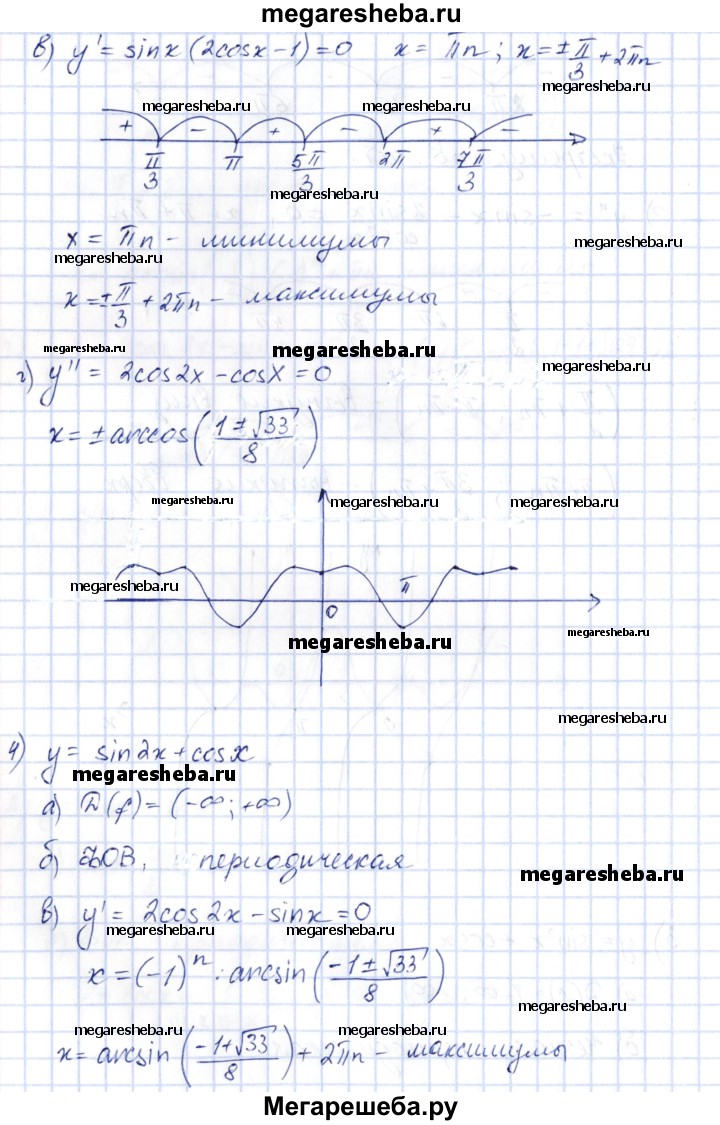 megaresheba.ru
в) y' = sinx (2cosx - 1) = 0   x = πn; x = ±π/3 + 2πn
megaresheba.ru megaresheba.ru
+ − + − + −
π/3 π 5π/3 2π 7π/3
megaresheba.ru
x = πn - минимумы
megaresheba.ru megaresheba.ru
x = ±π/3 + 2πn - максимумы
megaresheba.ru megaresheba.ru
г) y'' = 2cos2x - cosx = 0
megaresheba.ru
x = ± arccos((1 ± √33)/8)
megaresheba.ru megaresheba.ru megaresheba.ru
megaresheba.ru π
0
megaresheba.ru megaresheba.ru
megaresheba.ru
4) y = sin2x + cosx
megaresheba.ru
а) D(f) = (-∞; +∞)
б) ФОВ, периодическая
megaresheba.ru
в) y' = 2cos2x - sinx = 0
megaresheba.ru megaresheba.ru
x = (-1)^n · arcsin((-1 ± √33)/8)
megaresheba.ru
megaresheba.ru megaresheba.ru
x = arcsin((-1 + √33)/8) + 2πn - максимумы
Мегарешеба.ру